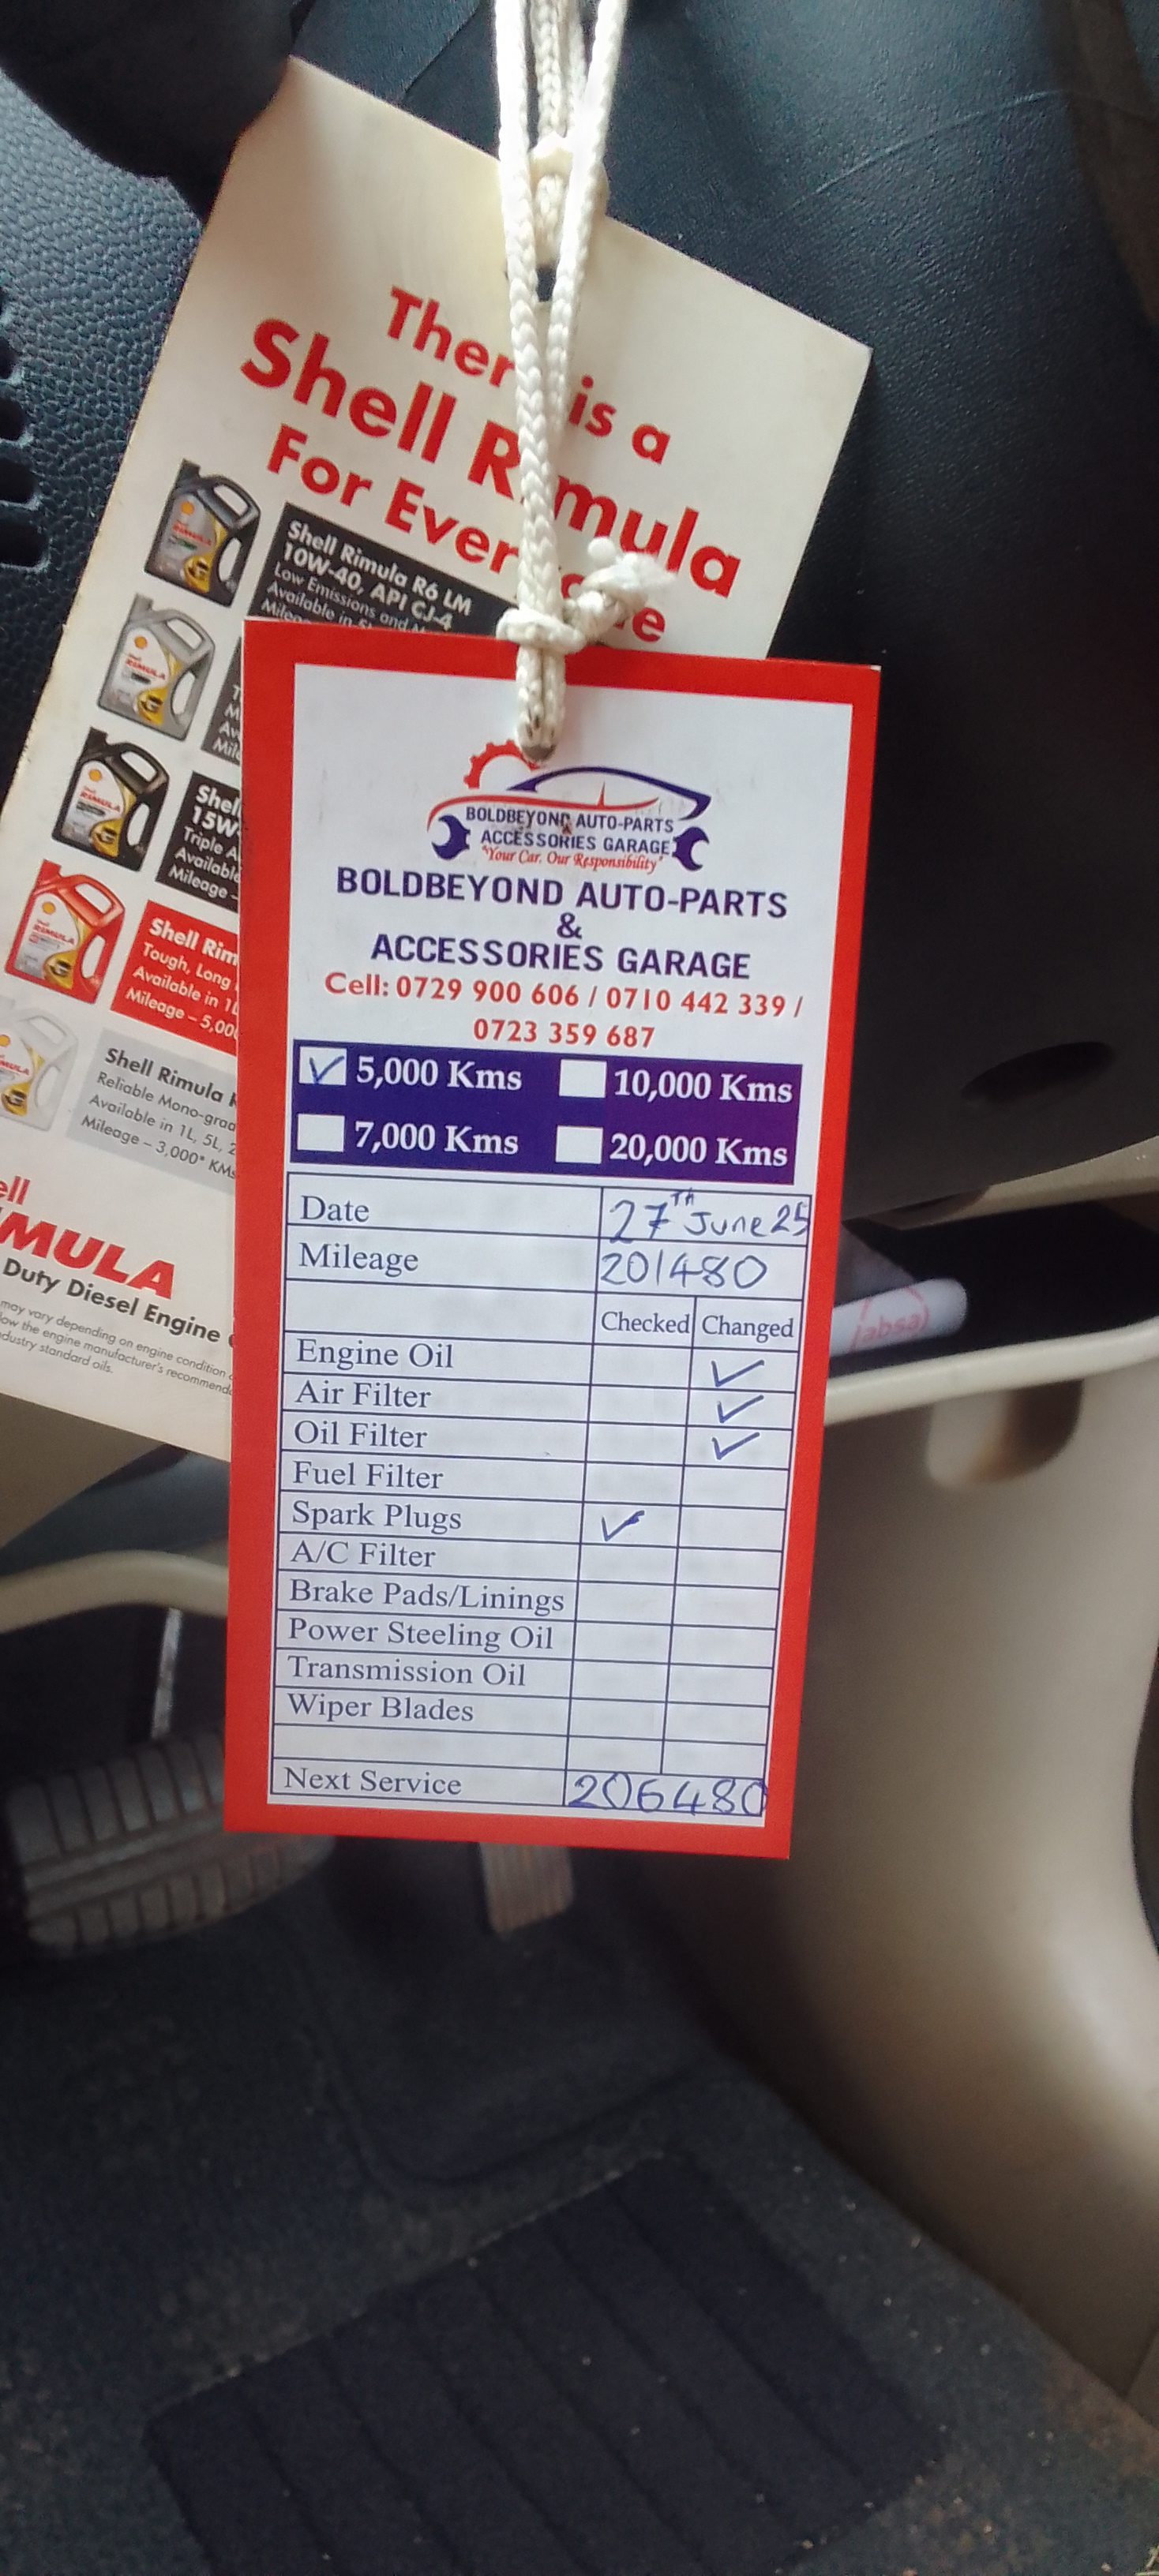 There is a
Shell Rimula
For Everyone
Shell Rimula R6 LM
10W-40, API CJ-4
Low Emissions and
Available in
Shell
15W-
Triple
Available
Mileage –
Shell Rim
Tough, Long
Available in 1L
Mileage – 5,00
Shell Rimula
Reliable Mono-grad
Available in 1L, 5L, 2
Mileage – 3,000* KMs
ell
MULA
Duty Diesel Engine
may vary depending on engine condition
low the engine manufacturer's recommend
dustry standard oils.
BOLDBEYOND AUTO-PARTS
&
ACCESSORIES GARAGE
"Your Car, Our Responsibility"
BOLDBEYOND AUTO-PARTS
&
ACCESSORIES GARAGE
Cell: 0729 900 606 / 0710 442 339 /
0723 359 687
✓ 5,000 Kms 10,000 Kms
7,000 Kms 20,000 Kms
Date 27TH June 25
Mileage 201480
Checked Changed
Engine Oil ✓
Air Filter ✓
Oil Filter ✓
Fuel Filter
Spark Plugs ✓
A/C Filter
Brake Pads/Linings
Power Steeling Oil
Transmission Oil
Wiper Blades
Next Service 206480
(absa)